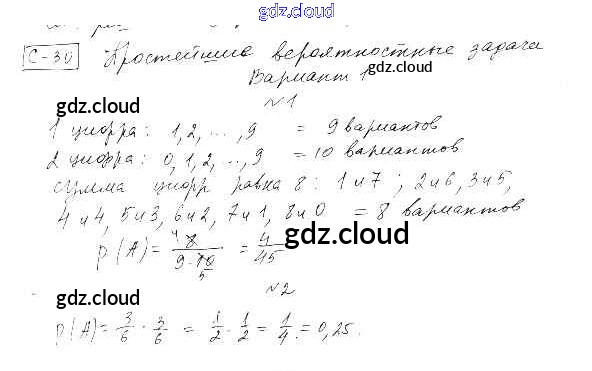 gdz.cloud
С-30 Простейшие вероятностные задачи
Вариант 1
gdz.cloud
№1
gdz.cloud
1 цифра: 1, 2, ..., 9 = 9 вариантов
2 цифра: 0, 1, 2, ..., 9 = 10 вариантов
gdz.cloud
сумма цифр равна 8: 1 и 7; 2 и 6, 3 и 5,
4 и 4, 5 и 3, 6 и 2, 7 и 1, 8 и 0 = 8 вариантов
P(A) = 8/(9·10) = 4/45
gdz.cloud
№2
gdz.cloud
P(A) = 3/6 · 3/6 = 1/2 · 1/2 = 1/4 = 0,25.
gdz.cloud